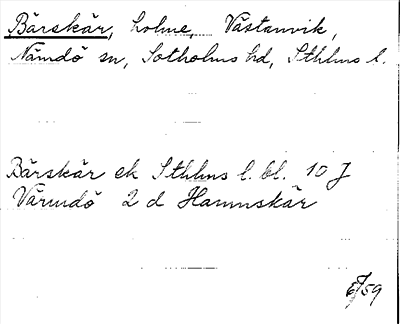 Bärskär, holme, Västanvik,
Nämdö sn, Sotholms hd, Sthlms l.
Bärskär ek Sthlms l. bl. 10 J
Värmdö 2 d Hamnskär